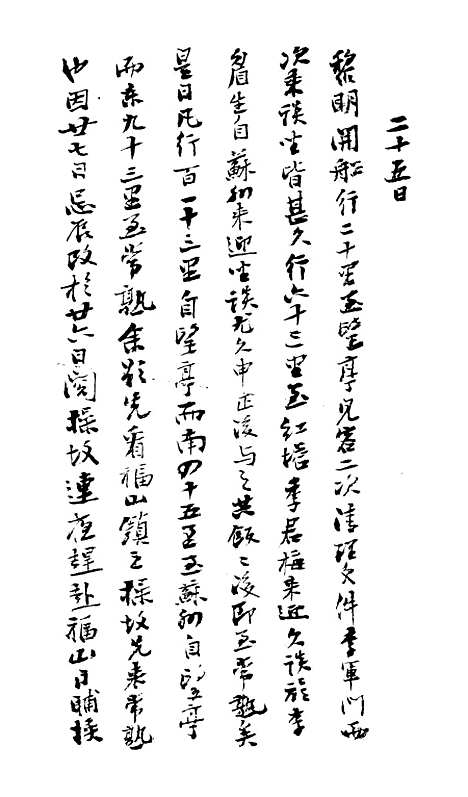 二十五日
黎明開船行二十里至望亭見客二次清理文件李軍門兩
次来談坐皆甚久行六十三里至紅塔季君梅来迎久談於李
眉生自蘇州来迎坐談尤久申正後与之共飯〻後即至常熟矣
是日凡行百一十三里自望亭而南四十五里至蘇州自望亭
而東九十三里至常熟余欲先看福山鎮之操故先来常熟
也因廿七日忌辰改於廿六日閱操故連夜趕赴福山日晡接